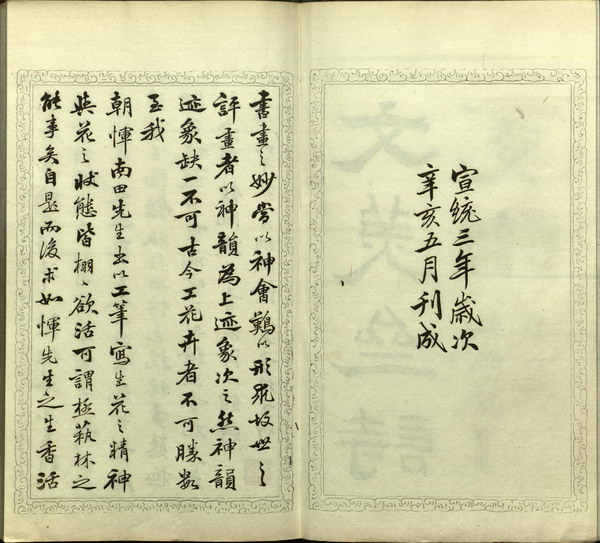 宣統三年歲次
辛亥五月刊成
書畫之妙當以神會難以形求故世之
評畫者以神韻為上迹象次之然神韻
迹象缺一不可古今工花卉者不可勝數
至我
朝惲南田先生出以工筆寫生花之精神
與花之狀態皆栩栩欲活可謂極蓺林之
能事矣自是而後求如惲先生之生香活